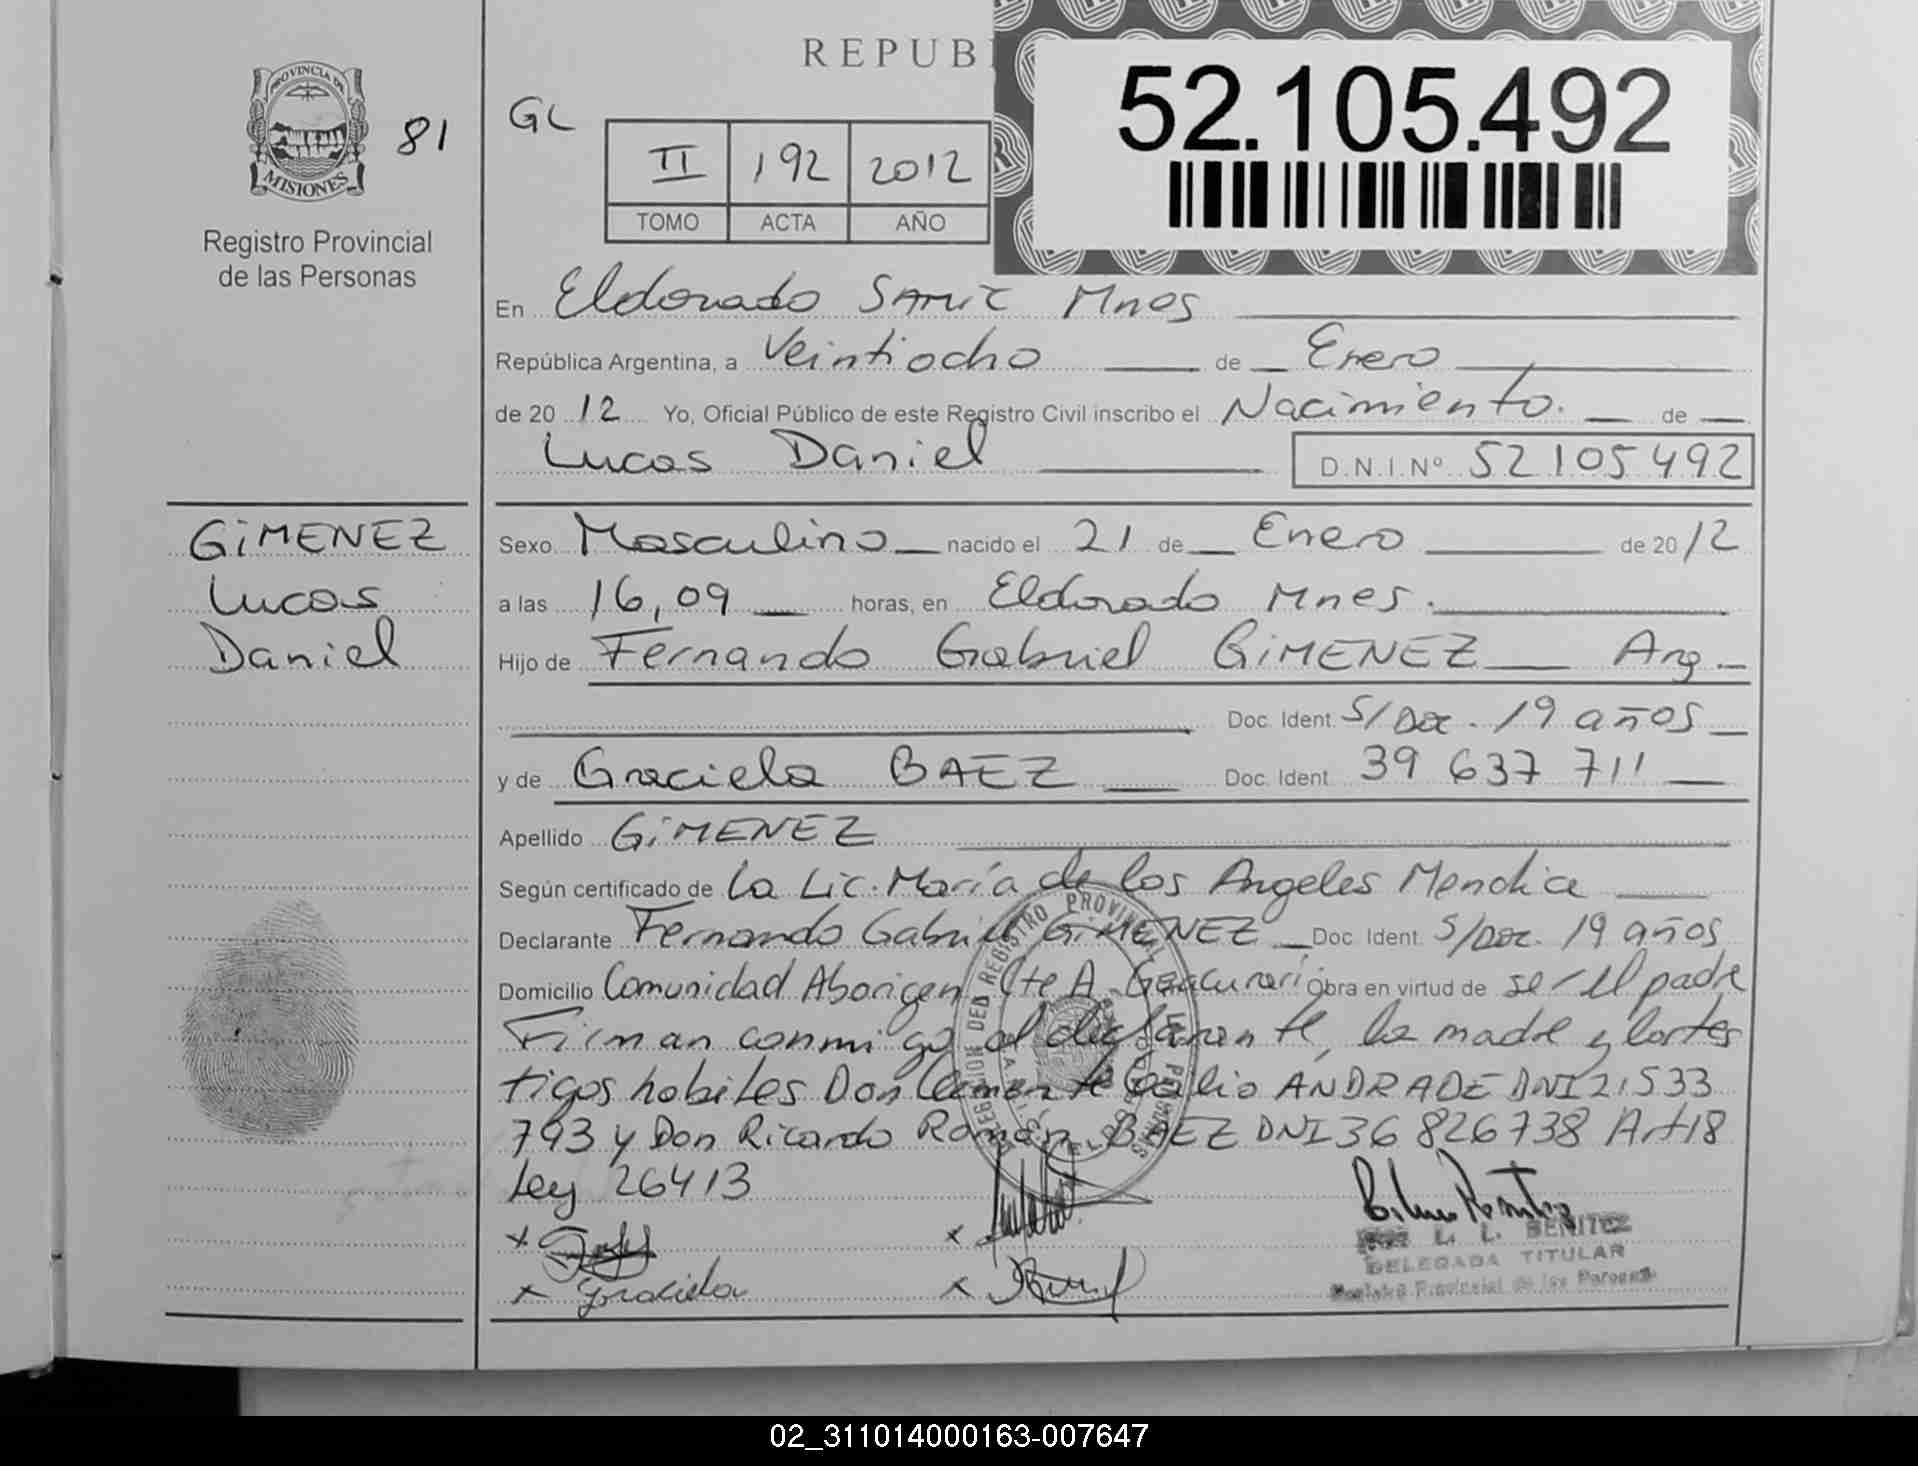 REPUB
52.105.492
PROVINCIA DE
MISIONES
81
GL
II 192 2012
TOMO ACTA AÑO
Registro Provincial
de las Personas
En Eldorado SAMIC Mnes
República Argentina, a Veintiocho de Enero
de 2012 Yo, Oficial Público de este Registro Civil inscribo el Nacimiento. de
Lucas Daniel D.N.I.Nº 52105492
GiMENEZ
Lucas
Daniel
Sexo Masculino nacido el 21 de Enero de 2012
a las 16,09 horas, en Eldorado Mnes.
Hijo de Fernando Gabriel GiMENEZ Arg.
Doc. Ident. S/Doc. 19 años
y de Graciela BAEZ Doc. Ident. 39 637 711
Apellido GiMENEZ
Según certificado de La Lic. María de los Angeles Mendica
Declarante Fernando Gabriel GiMENEZ Doc. Ident. S/Doc. 19 años
Domicilio Comunidad Aborigen Cte A. Guacurari Obra en virtud de ser el padre
Firman conmigo el declarante, la madre y los tes
tigos habiles Don Clemente ANDRADE DNI 21533
793 y Don Ricardo Román BAEZ DNI 36 826738 Art 18
Ley 26413
Graciela
L. L. BENITEZ
DELEGADA TITULAR
Registro Provincial de las Personas
02_311014000163-007647